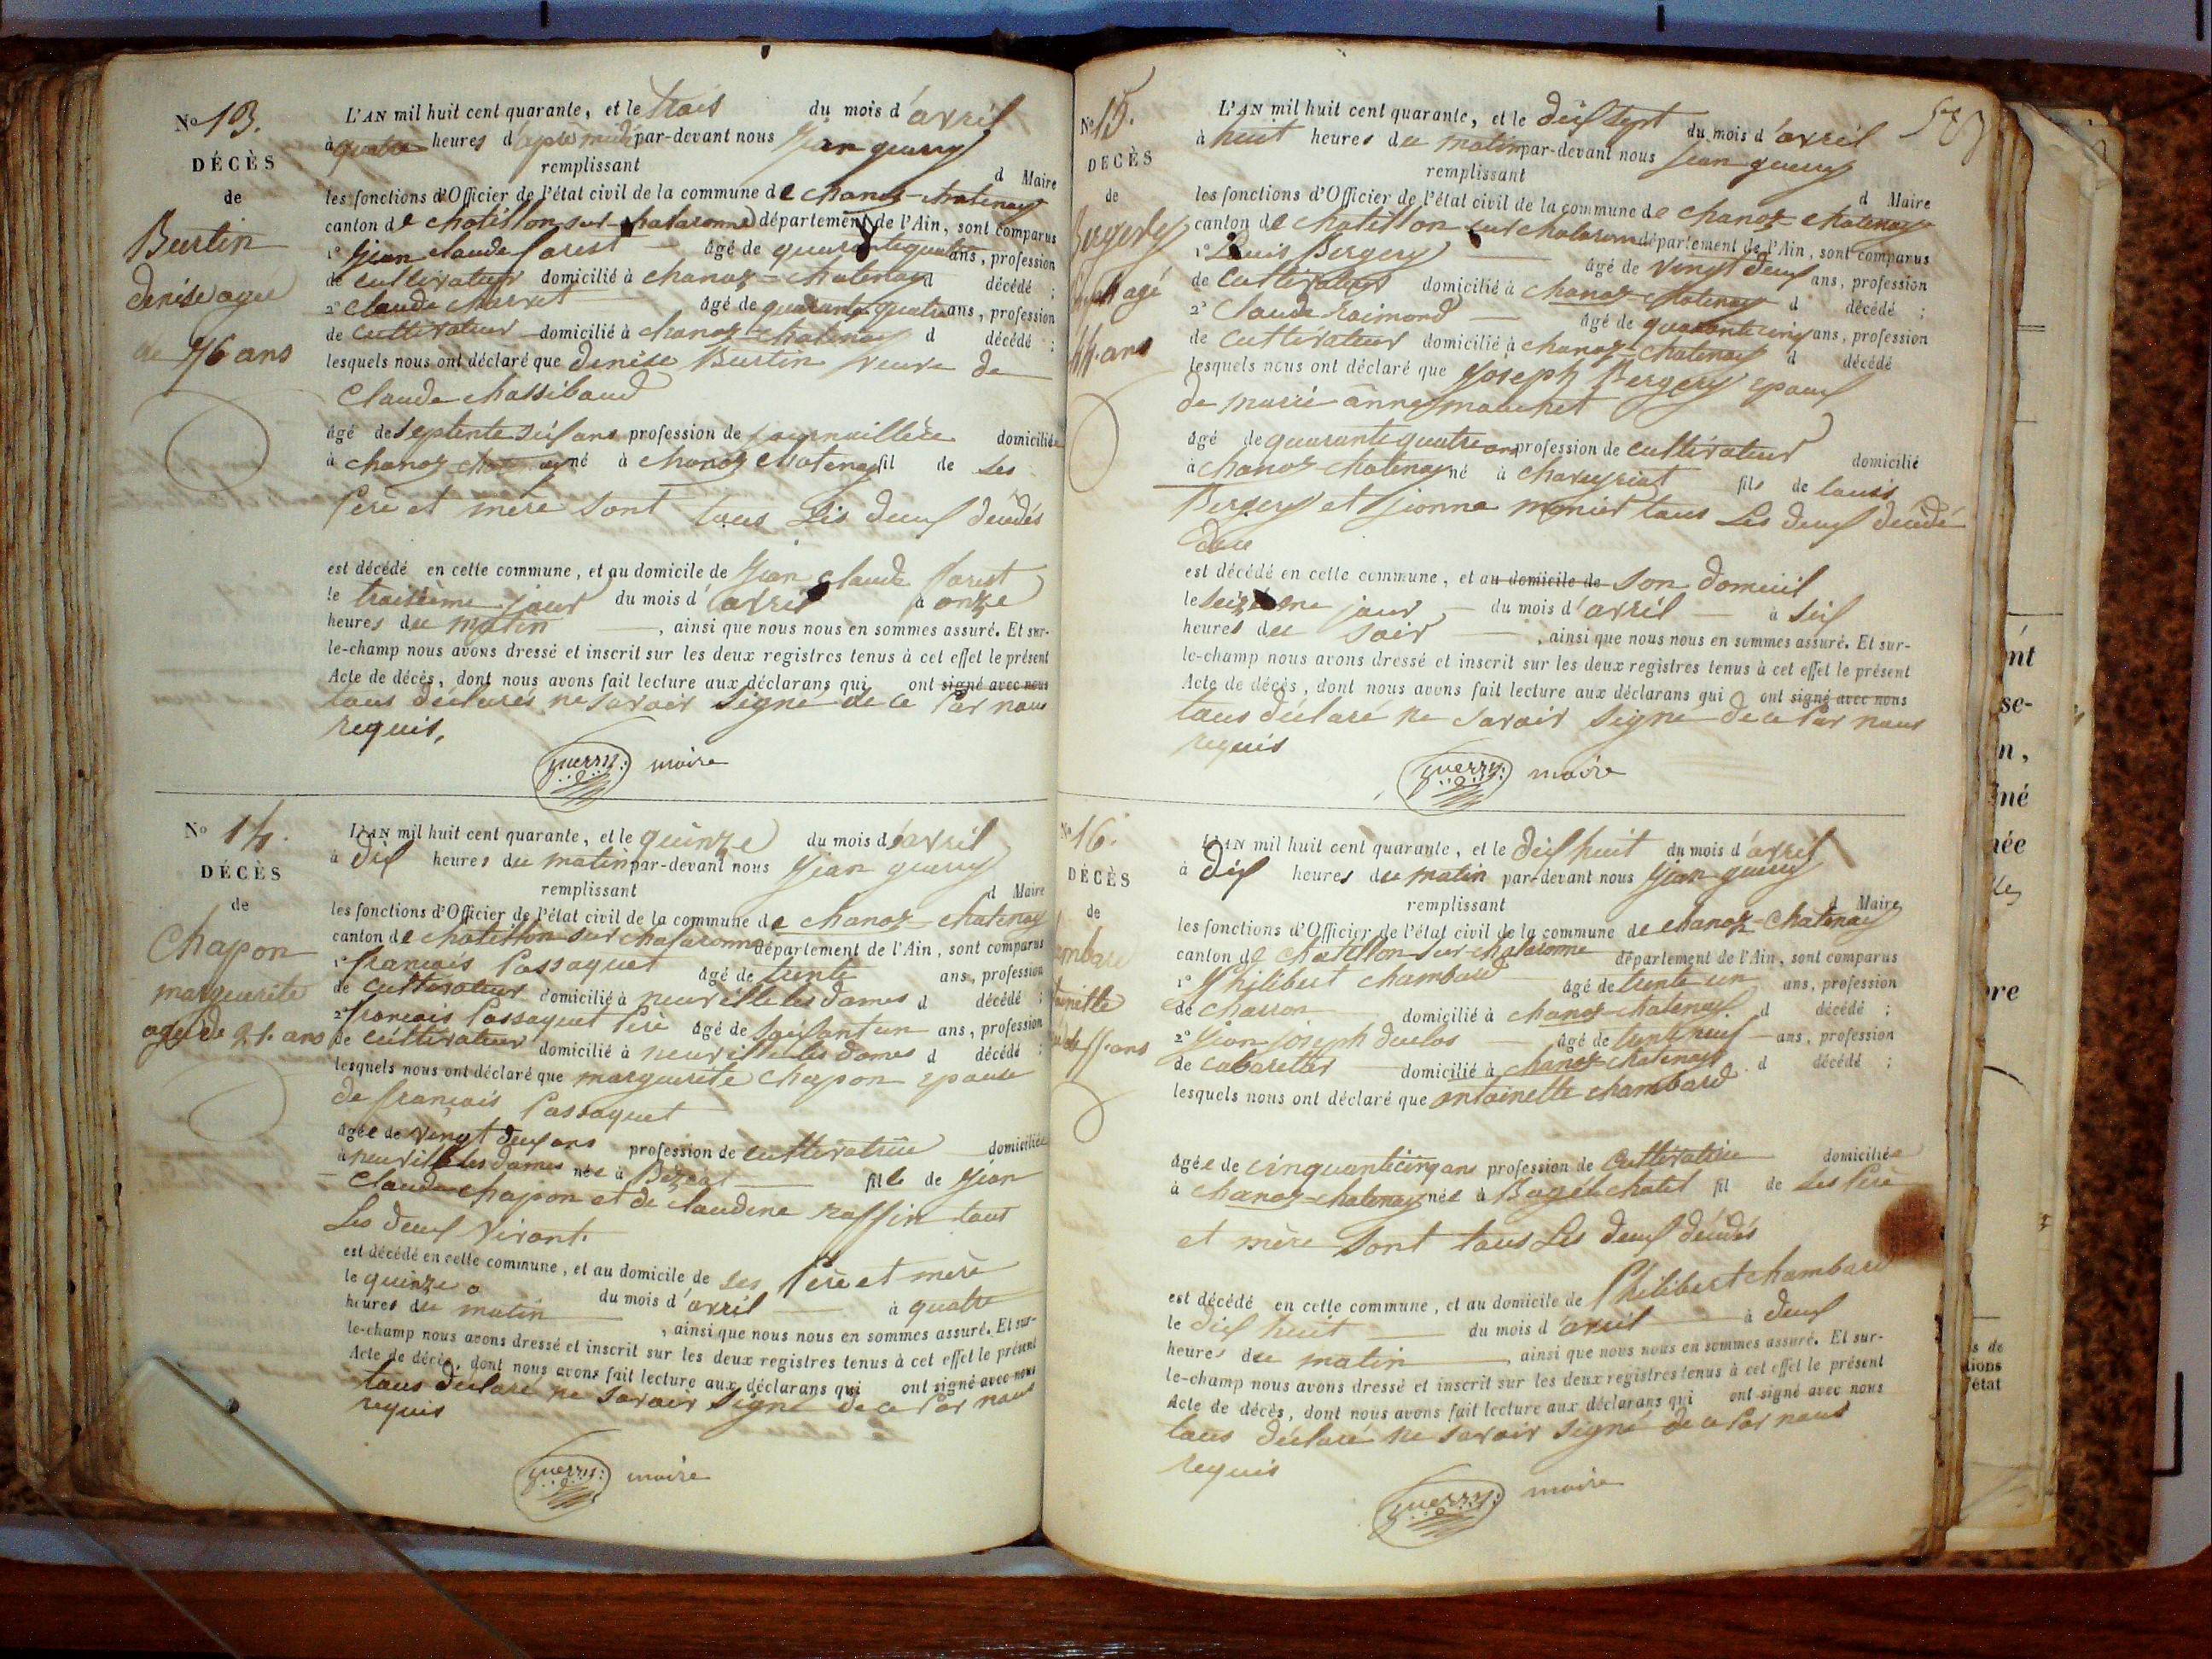 No 13.
DÉCÈS
de
Burtin
denise agee
de 76 ans
L'AN mil huit cent quarante, et le trois du mois d'avril
à quatre heures d'aprè midi par-devant nous Jean guerry
remplissant d Maire
les fonctions d'Officier de l'état civil de la commune de chanoz-chatenay
canton de chatillon sur chalaronne département de l'Ain, sont comparus
1º Jean claude forest âgé de quarante quatre ans, profession
de cultivateur domicilié à chanoz-chatenay d décédé ;
2º claude charvet âgé de quarante quatre ans, profession
de cultivateur domicilié à chanoz-chatenay d décédé ;
lesquels nous ont déclaré que denise Burtin veuve de
Claude chassibaud
âgé de septente seis ans profession de journaillère domiciliée
à chanoz né à chanoz chatenay fil de ses
père et mère sont tous les deux décédés
est décédé en cette commune, et au domicile de Jean claude forest
le troisième jour du mois d'avril à onze
heures du matin, ainsi que nous nous en sommes assuré. Et sur-
le-champ nous avons dressé et inscrit sur les deux registres tenus à cet effet le présent
Acte de décès, dont nous avons fait lecture aux déclarans qui ont signé avec nous
tous déclarés ne savoir signé de ce par nous
requis,
guerry maire
No 14.
DÉCÈS
de
Chapon
marguerite
agée de 21. ans
L'AN mil huit cent quarante, et le quinze du mois d'avril
à dix heures du matin par-devant nous Jean guerry
remplissant d Maire
les fonctions d'Officier de l'état civil de la commune de chanoz-chatenay
canton de chatillon sur chalaronne département de l'Ain, sont comparus
1º francois Passaquet âgé de trente ans, profession
de cultivateur domicilié à neuville les dames d décédé ;
2º francois Passaquet père âgé de soixant un ans, profession
de cultivateur domicilié à neuville les dames d décédé ;
lesquels nous ont déclaré que marguerite chapon epouse
de francois Passaquet
âgée de vingt deux ans profession de cultivatrice domiciliée
à neuville les dames née à file de Jean
Claude chapon et de claudine raffin tout
les deux vivant.
est décédé en cette commune, et au domicile de ses père et mère
le quinze du mois d'avril à quatre
heures du matin, ainsi que nous nous en sommes assuré. Et sur-
le-champ nous avons dressé et inscrit sur les deux registres tenus à cet effet le présent
Acte de décès, dont nous avons fait lecture aux déclarans qui ont signé avec nous
tous déclaré ne savoir signé de ce par nous
requis
guerry maire
No 15.
DÉCÈS
de
agé
44. ans
L'AN mil huit cent quarante, et le dix sept du mois d'avril
à huit heures du matin par-devant nous Jean guerry
remplissant d Maire
les fonctions d'Officier de l'état civil de la commune de chanoz-chatenay
canton de chatillon sur chalaronne département de l'Ain, sont comparus
1º Louis Bergery âgé de vingt deux ans, profession
de cultivateur domicilié à chanoz-chatenay d décédé ;
2º Claude raimond âgé de quarante cinq ans, profession
de cultivateur domicilié à chanoz-chatenay d décédé
lesquels nous ont déclaré que Joseph Bergery epoux
de marie anne mouchet
âgé de quarante quatre ans profession de cultivateur domicilié
à chanoz-chatenay né à chaveyriat fils de louis
Bergery et monier tous les deux décédé
est décédé en cette commune, et au domicile de son domicil
le seizième jour du mois d'avril à six
heures du soir, ainsi que nous nous en sommes assuré. Et sur-
le-champ nous avons dressé et inscrit sur les deux registres tenus à cet effet le présent
Acte de décès, dont nous avons fait lecture aux déclarans qui ont signé avec nous
tous déclaré ne savoir signé de ce par nous
requis
guerry maire
No 16.
DÉCÈS
de
ans
L'AN mil huit cent quarante, et le dix huit du mois d'avril
à dix heures du matin par-devant nous Jean guerry
remplissant d Maire
les fonctions d'Officier de l'état civil de la commune de chanoz-chatenay
canton de chatillon sur chalaronne département de l'Ain, sont comparus
1º Philibert chambard âgé de trente un ans, profession
de charron domicilié à chanoz-chatenay d décédé ;
2º Jean joseph duclos âgé de trent neuf ans, profession
de cabaretter domicilié à chanoz-chatenay d décédé ;
lesquels nous ont déclaré que antoinette chambard
âgée de cinquante cinq ans profession de cultivatrice domiciliée
à chanoz-chatenay née à Bagé chatel fil de ses père
et mère sont tous les deux décédés
est décédé en cette commune, et au domicile de Philibert chambard
le dix huit du mois d'avril à deux
heures du matin, ainsi que nous nous en sommes assuré. Et sur-
le-champ nous avons dressé et inscrit sur les deux registres tenus à cet effet le présent
Acte de décès, dont nous avons fait lecture aux déclarans qui ont signé avec nous
tous déclaré ne savoir signé de ce par nous
requis
guerry maire